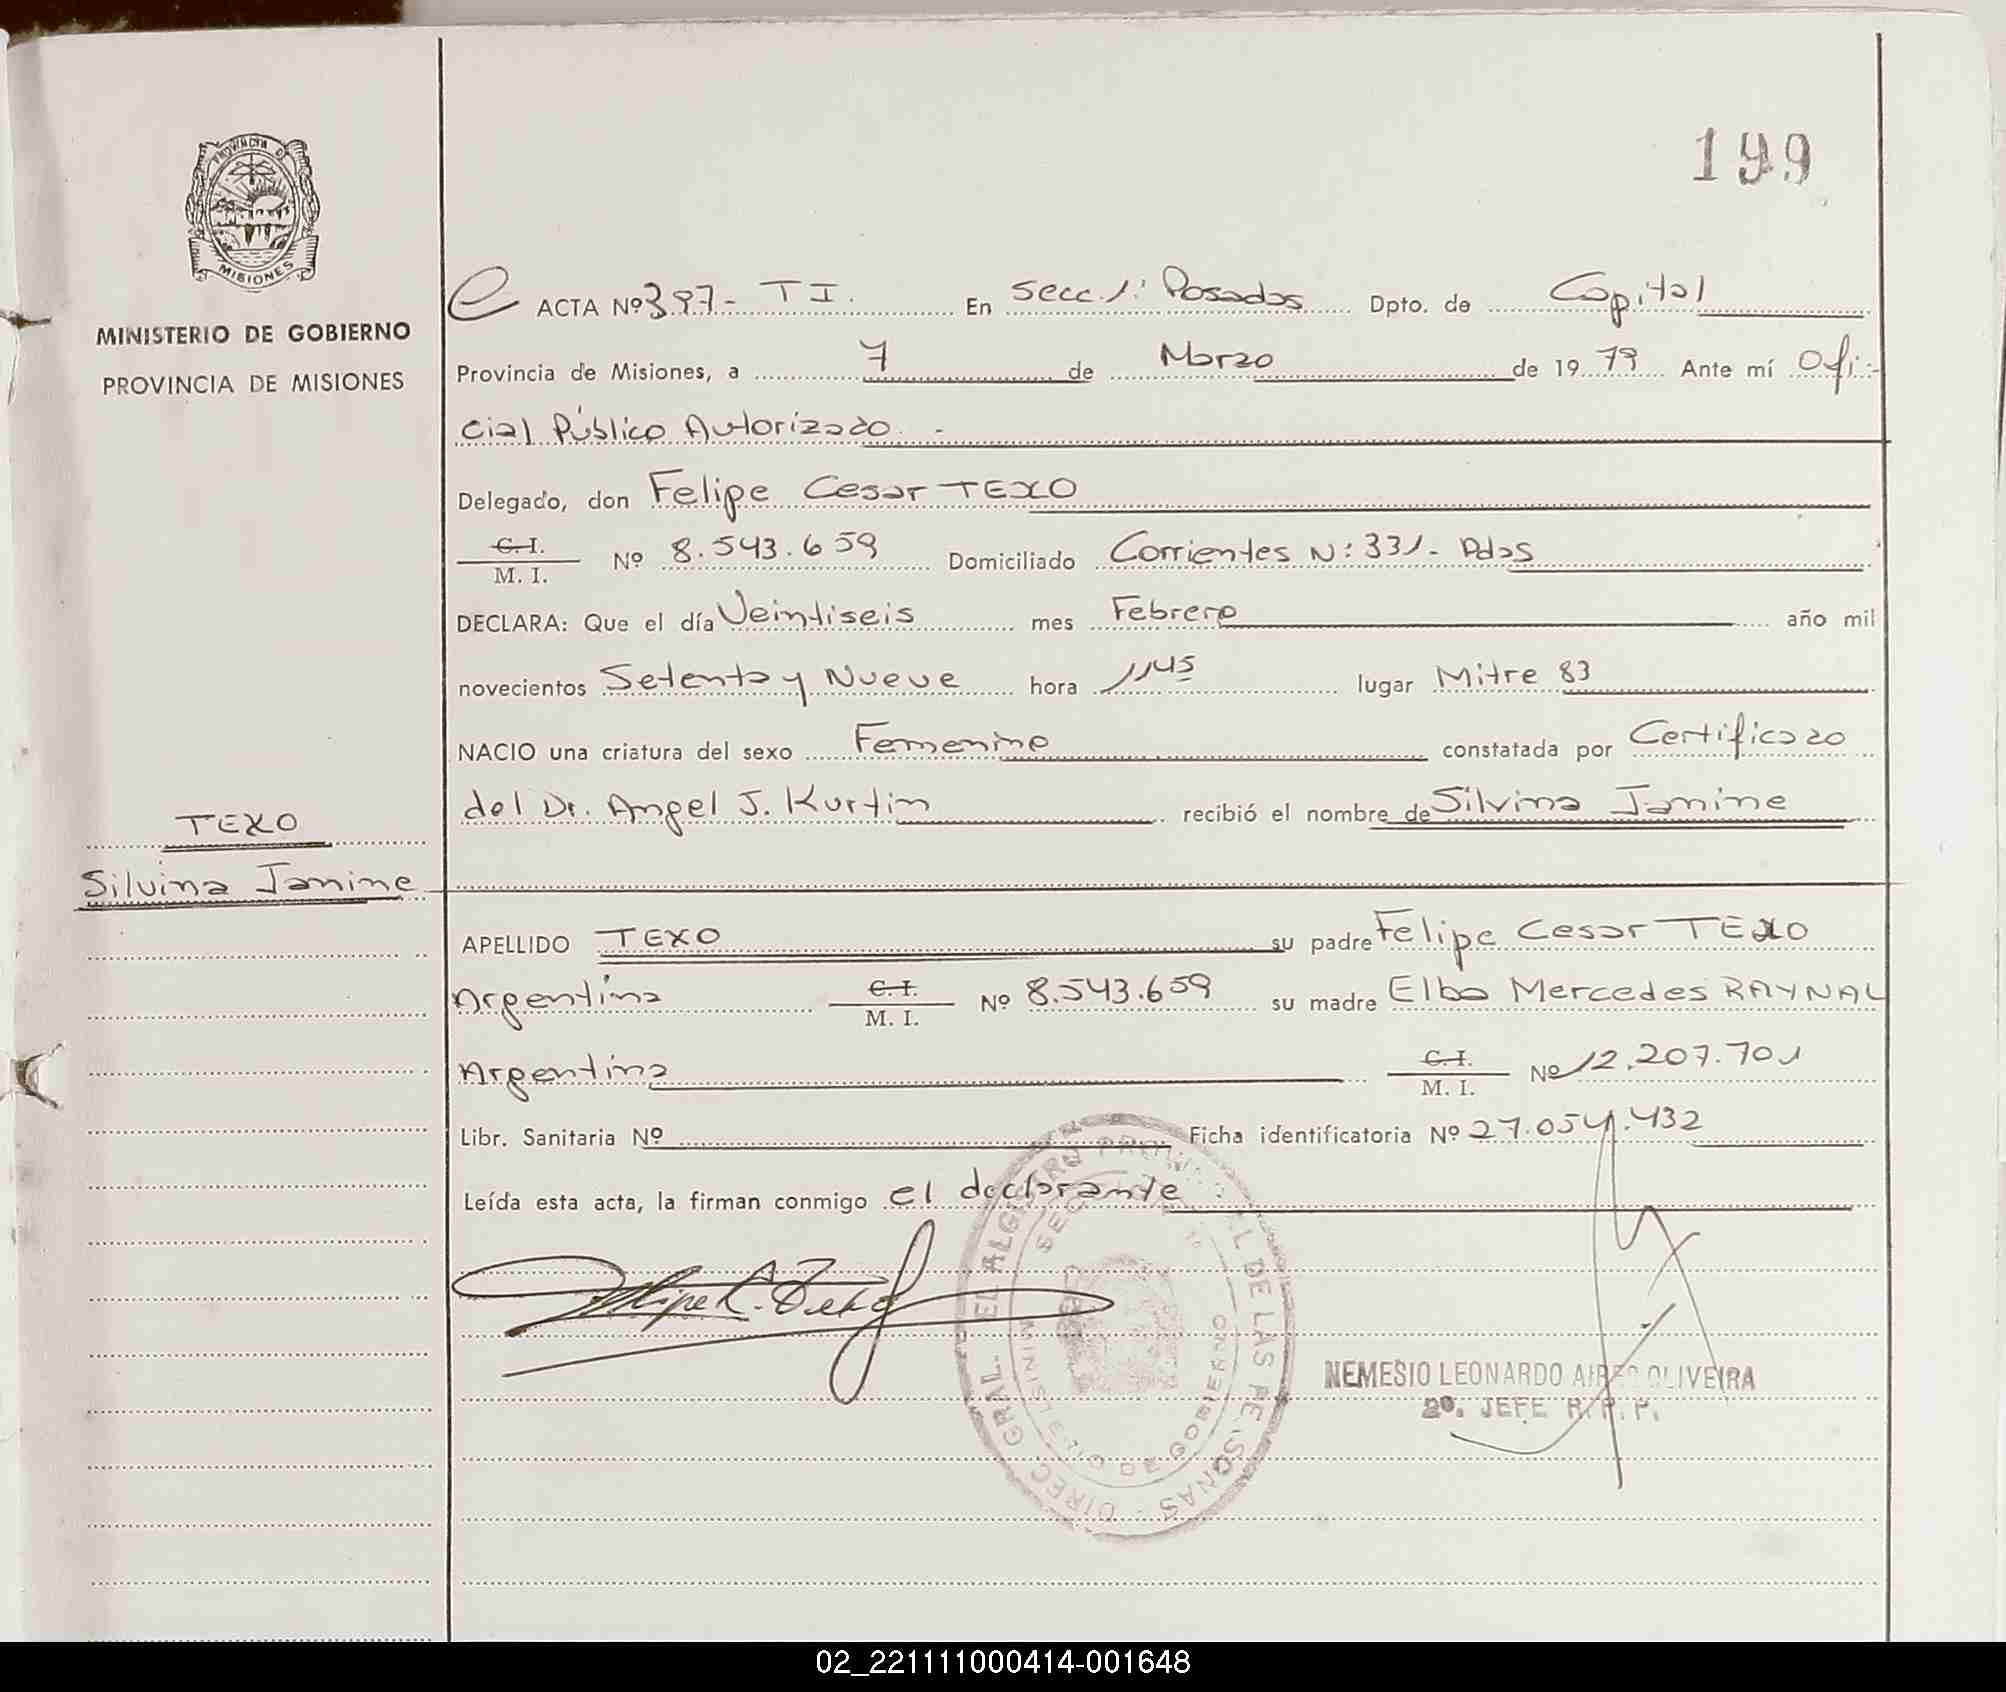 199
PROVINCIA DE
MISIONES
MINISTERIO DE GOBIERNO
PROVINCIA DE MISIONES
ACTA Nº 397- T I. En Secc. 1ª Posadas Dpto. de Capital
Provincia de Misiones, a 7 de Marzo de 1979 Ante mí Ofi-
cial Público Autorizado.-
Delegado, don Felipe Cesar TEXO
C. I. / M. I. Nº 8.543.659 Domiciliado Corrientes N: 331- Pdas
DECLARA: Que el día Veintiseis mes Febrero año mil
novecientos Setenta y Nueve hora 1145 lugar Mitre 83
NACIO una criatura del sexo Femenino constatada por Certificado
del Dr. Angel J. Kurtin recibió el nombre de Silvina Janine
TEXO
Silvina Janine
APELLIDO TEXO su padre Felipe Cesar TEXO
Argentina C. I. / M. I. Nº 8.543.659 su madre Elba Mercedes RAYNAL
Argentina C. I. / M. I. Nº 12.207.701
Libr. Sanitaria Nº Ficha identificatoria Nº 27.054.432
Leída esta acta, la firman conmigo el declarante.
DIREC. GRAL. DE LAS PERSONAS
MINISTERIO DE GOBIERNO
NEMESIO LEONARDO AIRES OLIVEIRA
2º. JEFE R. P. P.
02_221111000414-001648